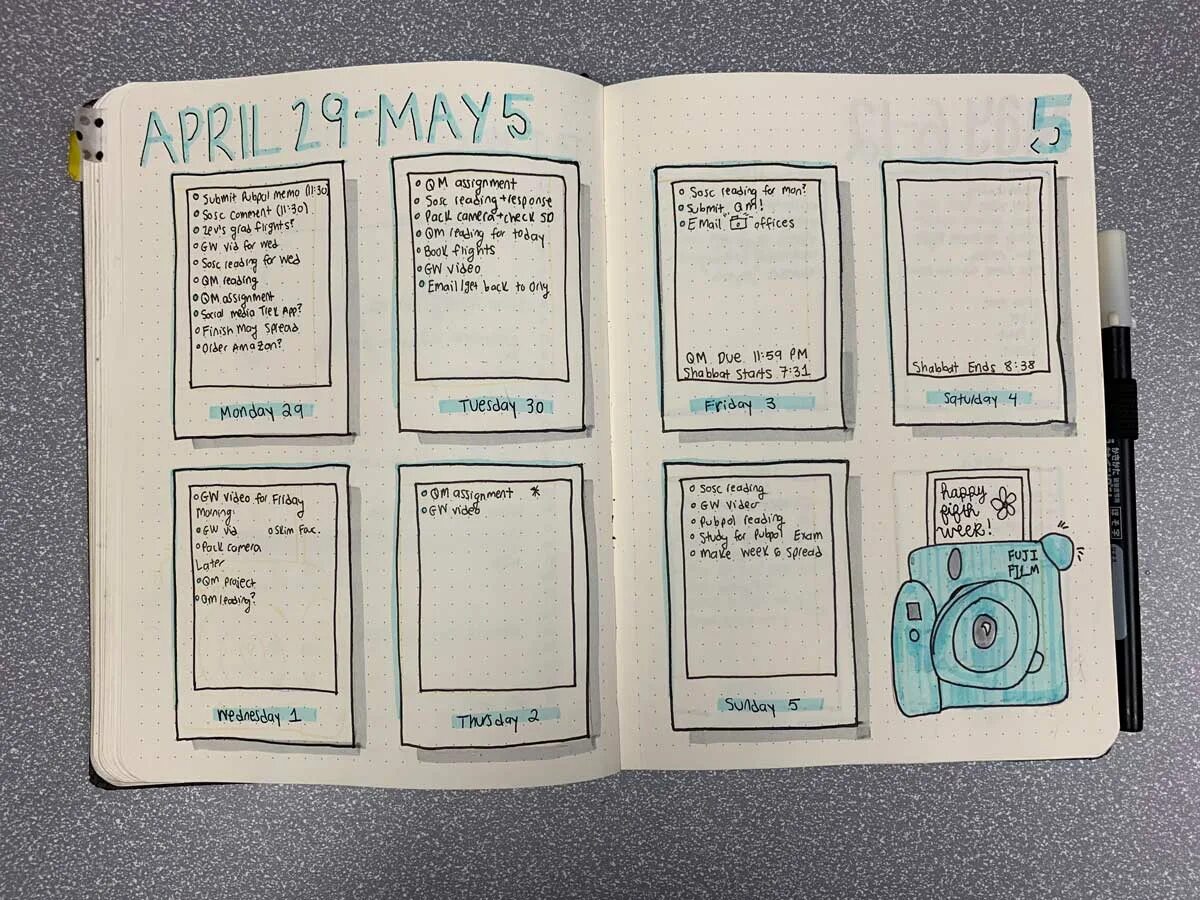 APRIL 29-MAY 5
Submit Pubpol memo (11:30)
Sosc comment (11:30)
Zev's grad flights?
GW vid for wed
Sosc reading for wed
QM reading
QM assignment
Social media Trek App?
Finish May Spread
Order Amazon?
Monday 29
QM assignment
Sosc reading+response
Pack camera+check SD
QM reading for today
Book flights
GW video
Email/get back to Orly
Tuesday 30
GW video for Friday
Morning
GW vid Skim Fac.
Pack camera
Later
QM project
QM reading?
Wednesday 1
QM assignment *
GW video
Thursday 2
5
Sosc reading for mon?
Submit QM!
Email offices
QM Due 11:59 PM
Shabbat Starts 7:31
Friday 3
Shabbat Ends 8:38
Saturday 4
Sosc reading
GW video
Pubpol reading
Study for Pubpol Exam
Make week 6 spread
Sunday 5
happy
fifth
week!
FUJI
FILM